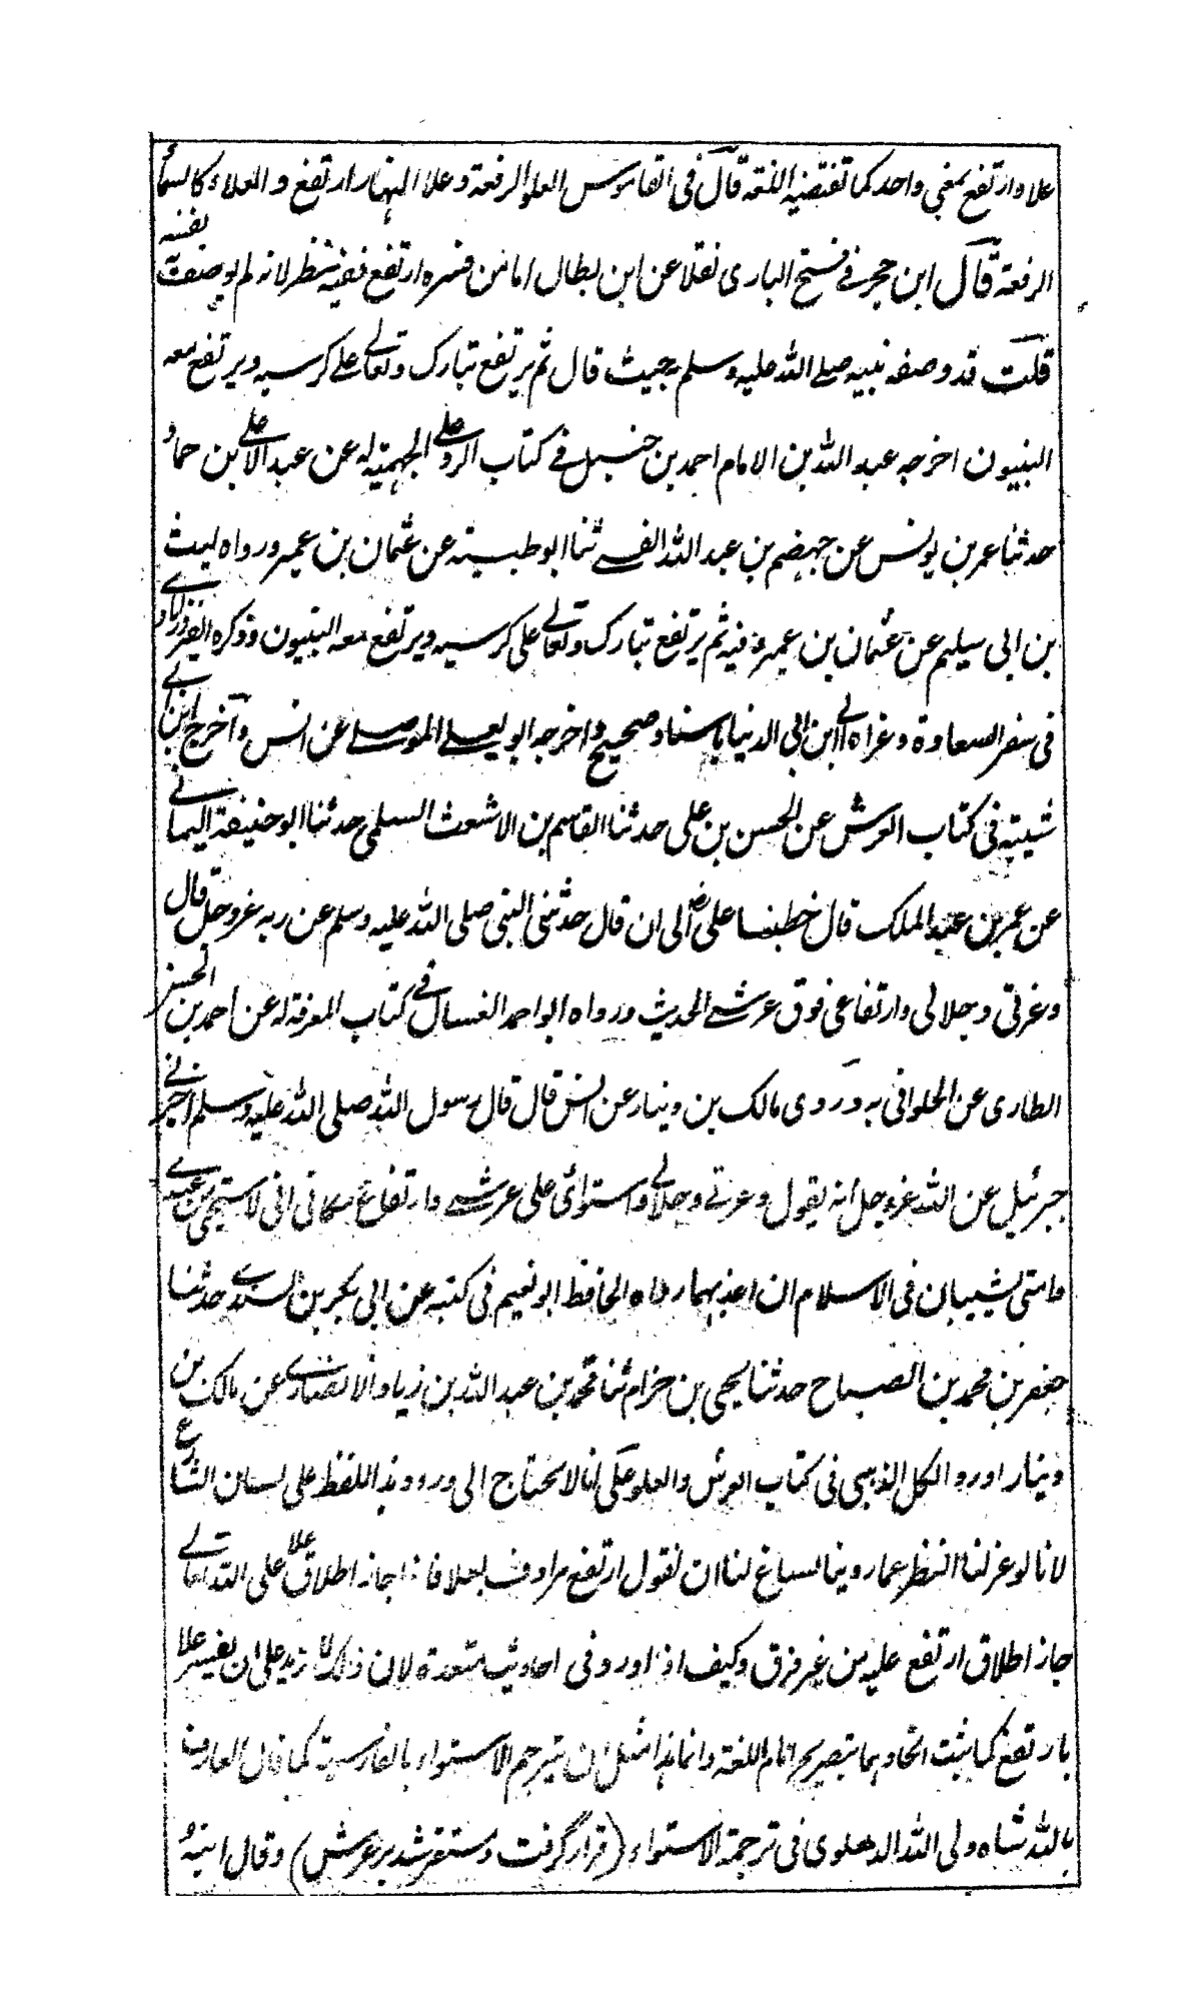 علا وارتفع بمعنى واحد كما تقتضيه اللغة قال فى القاموس العلو الرفعة وعلا النهار ارتفع والعلاء كالسماء
الرفعة قال ابن حجر فے فتح البارى نقلا عن ابن بطال اما من فسره ارتفع ففيه نظر لانه لم يوصف نفسه
قلت قد وصفه نبيه صلے الله عليه وسلم بحيث قال ثم يرتفع تبارك وتعالے علے كرسيه ويرتفع معه
النبيون اخرجه عبد الله بن الامام احمد بن حنبل فے كتاب الرد علے الجهمية له عن عبد الاعلے بن حماد
حدثنا عمر بن يونس عن جهضم بن عبد الله القيسے ثنا ابو طيبته عن عثمان بن عمير ورواه ليث
بن ابى سليم عن عثمان بن عمير وفيه ثم يرتفع تبارك وتعالے على كرسيه ويرتفع معه النبيون وذكره الفيروزابادے
فى سفر السعادة وعزاه الے ابن ابى الدنيا باسناد صحيح واخرجه ابو يعلے الموصلے عن انس واخرج ابن ابے
شيبة فى كتاب العرش عن الحسن بن على حدثنا القاسم بن الاشعث السلمى حدثنا ابو حنيفة اليمانے
عن عمير بن عبد الملك قال خطبنا على رض الى ان قال حدثنى النبى صلى الله عليه وسلم عن ربه عز وجل قال
وعزتى وجلالى وارتفاعى فوق عرشے الحديث ورواه ابو احمد العسال فے كتاب المعرفة له عن احمد بن الحسن
الطارى عن الحلوانى به وروى مالك بن دينار عن انس قال قال رسول الله صلى الله عليه وسلم اخبرنے
جبرئيل عن الله عز وجل انه يقول وعزتے وجلالے واستوائى على عرشے وارتفاع مكانى انى لاستحيى من عبدے
وامتى يشيبان فى الاسلام ان اعذبهما رواه الحافظ ابو نعيم فى كتبه عن ابى بكر بن السندے حدثنا
جعفر بن محمد بن الصباح حدثنا يحيى بن خزام ثنا محمد بن عبد الله بن زياد الانصارے عن مالك بن
دينار اورد الكل الذهبى فى كتاب العرش والعلو على انا لا نحتاج الى ورود هذا اللفظ على لسان الشارع
لانا لو عزلنا النظر عما روينا لساغ لنا ان نقول ارتفع مرادف لعلا فاذا جاز اطلاق علا على الله تعالے
جاز اطلاق ارتفع عليه من غير فرق وكيف اذا ورد فى احاديث متعددة لان ذلك لا زيد على ان تفسير علا
بارتفع كما ثبت اتحادهما بتصريح ائمة اللغة وانما هذا مثل ان يترجم الاستواء بالفارسية كما قال العارف
بالله شاه ولى الله الدهلوى فى ترجمة الاستواء (قرار گرفت و مستقر شد بر عرش) وقال ابنه